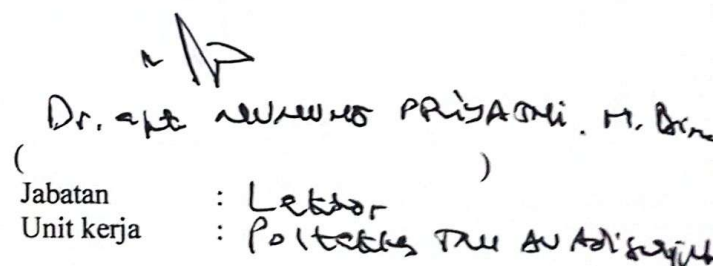 Dr. apt NUNUNG PRIYATNI. M. Biomed
(                    )
Jabatan : Lektor
Unit kerja : Poltekkes TNI AU Adisutjipto